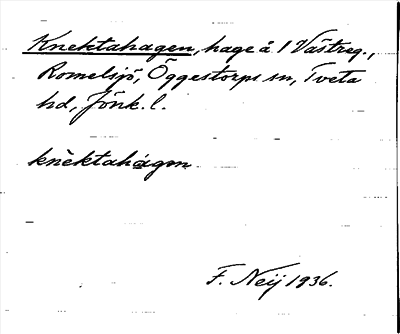 Knektahagen, hage å 1 Västreg.,
Romelsjö, Öggestorps sn, Tveta
hd, Jönk. l.
knèktahágen
F. Neij 1936.